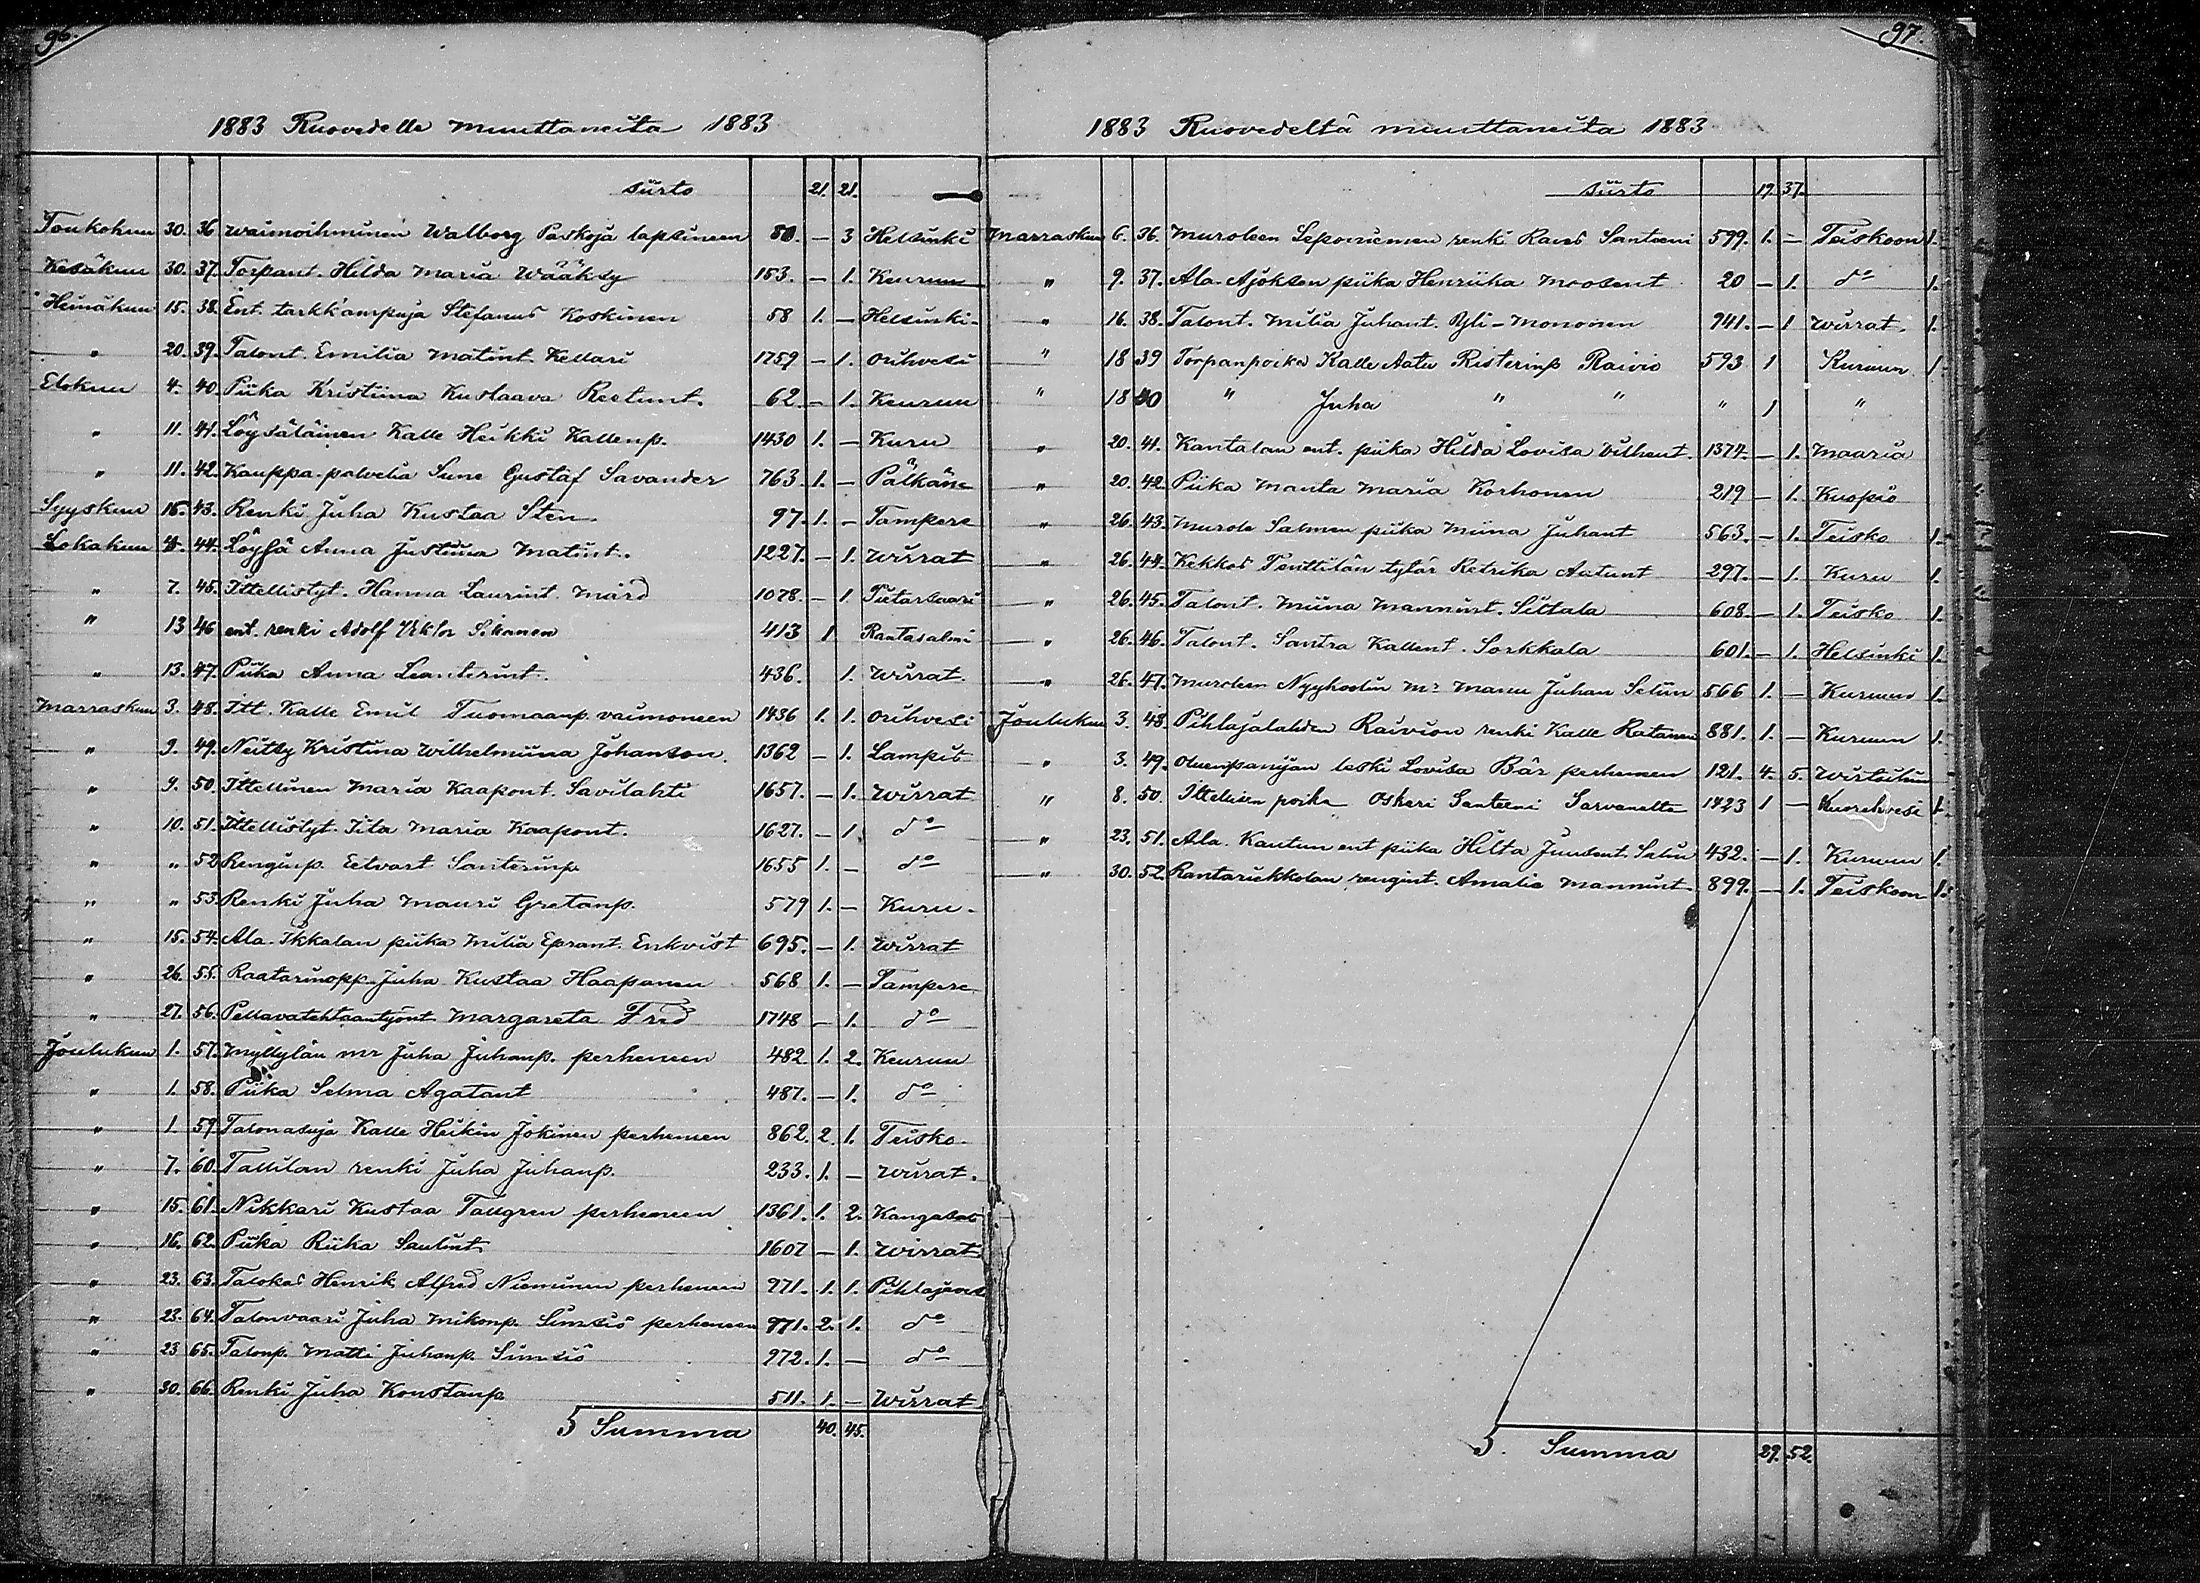 96.
1883 Ruovedelle muuttaneita 1883
siirto 21. 21.
Toukokuu 30. 36 waimoihminen Walborg Paskoja lapsineen 50. — 3 Helsinki
Kesäkuu 30. 37. Torpant. Hilda Maria Wääksy 153. — 1. Keuruu
Heinäkuu 15. 38. Ent. tarkk'ampuja Stefanus Koskinen 58 1. — Helsinki
" 20. 39. Talont. Emilia Matint. Kellari 1759 — 1. Orihvesi
Elokuu 4. 40. Piika Kristiina Kustaava Reetunt. 62. — 1. Keuruu
" 11. 41. Löysäläinen Kalle Heikki Kallenp. 1430 1. — Kuru
" 11. 42. Kauppa-palvelia Sune Gustaf Savander 763. 1. — Pälkäne
Syyskuu 15. 43. Renki Juha Kustaa Sten 97. 1. — Tampere
Lokakuu 4. 44. Löysä Anna Justiina Matint. 1227. — 1. Wirrat
" 7. 45. Ittellistyt. Hanna Laurint. Märd 1078. — 1. Pietarsaari
" 13 46 ent. renki Adolf Viktor Sikanen 413 1 Rantasalmi
" 13. 47. Piika Anna Leanterint. 436. 1. Wirrat.
Marraskuu 3. 48. Itt. Kalle Emil Tuomaanp. vaimoneen 1436 1. 1. Orihvesi
" 9. 49. Neitsy Kristina Wilhelmiina Johanson. 1362 — 1. Lampis
" 9. 50. Ittellinen Maria Kaapont. Savilahti 1657. — 1. Wirrat
" 10. 51. Ittellistyt. Iita Maria Kaapont. 1627. — 1. do
" " 52 Renginp. Eetvart Santerinp. 1655 1. — do
" " 53. Renki Juha Mauri Gretanp. 579 1. — Kuru.
" 15. 54. Ala-Ikkalan piika Milia Eprant. Enkvist 695. — 1. Wirrat
" 26. 55. Raatarinopp. Juha Kustaa Haapanen 568 1. — Tampere
" 27. 56. Pellavatehtaantyönt. Margareta Fred 1748 — 1. do
Joulukuu 1. 57. Myllylän mr Juha Juhanp. perheneen 482 1. 2. Keuruu
" 1. 58. Piika Selma Agatant 487. — 1. do
" 1. 59. Talonasuja Kalle Heikin Jokinen perheneen 862. 2. 1. Teisko
" 7. 60. Tallilan renki Juha Juhanp. 233. 1. — Wirrat.
" 15. 61. Nikkari Kustaa Tallgren perheneen 1361. 1. 2. Kangasala
" 16. 62. Piika Riika Saulint. 1607 — 1. Wirrat
" 23. 63. Talokas Henrik Alfred Nieminen perheneen 971. 1. 1. Pihlajaves
" 23. 64. Talonvaari Juha Mikonp. Simsiö perheneen 971. 2. 1. do
" 23 65. Talonp. Matti Juhanp. Simsiö 972. 1. — do
" 30. 66. Renki Juha Konstanp. 511. 1. — Wirrat
S Summa 40. 45.
97.
1883 Ruovedeltä muuttaneita 1883
siirto 19. 37.
Marraskuu 6. 36. Muroleen Leponiemen renki Santeeni 599. 1. — Teiskoon 1.
" 9. 37. Ala-Ajoksen piika Henriika Moosent 20 — 1. do 1.
" 16. 38. Talont. Milia Juhant. Yli-Mononen 941. — 1 Wirrat. 1.
" 18 39 Torpanpoika Kalle Aatu Risterinp Raivio 593 1 Kuruun 1.
" 18 40 " Juha " " " 1 "
" 20. 41. Kantalan ent. piika Hilda Lovisa Vilhent. 1374. — 1. Maaria
" 20. 42. Piika Manta Maria Korhonen 219 — 1. Kuopio
" 26. 43. Murole Salmen piika Miina Juhant 563. — 1. Teisko 1.
" 26. 44. Kekkos Penttilän tytär Retrika Aatunt 297. — 1. Kuru 1.
" 26. 45. Talont. Miina Mannint. Siltala 608. — 1. Teisko 1.
" 26. 46. Talont. Santra Kallent. Sorkkala 601. — 1. Helsinki 1.
" 26. 47. Muroleen Nyyhoolin mr Manu Juhan Selin 566 1. — Kuruun 1.
Joulukuu 3. 48. Pihlajalahden Raivion renki Kalle Ratanen 881. 1. — Kuruun 1.
" 3. 49. Oluenpanijan leski Lovisa Bär perheneen 121. 4. 5. Wirtsihin
" 8. 50. Ittelisen poika Oskari Santeeni Sarvanelta 1423 1 — Kuorehvesi 1.
" 23. 51. Ala Kautun ent piika Hilta Juusent. Salin 432. — 1. Kuruun 1.
" 30. 52. Rantariekkolan rengint. Amalia Mannint 899. — 1. Teiskoon 1.
S. Summa 29. 52.